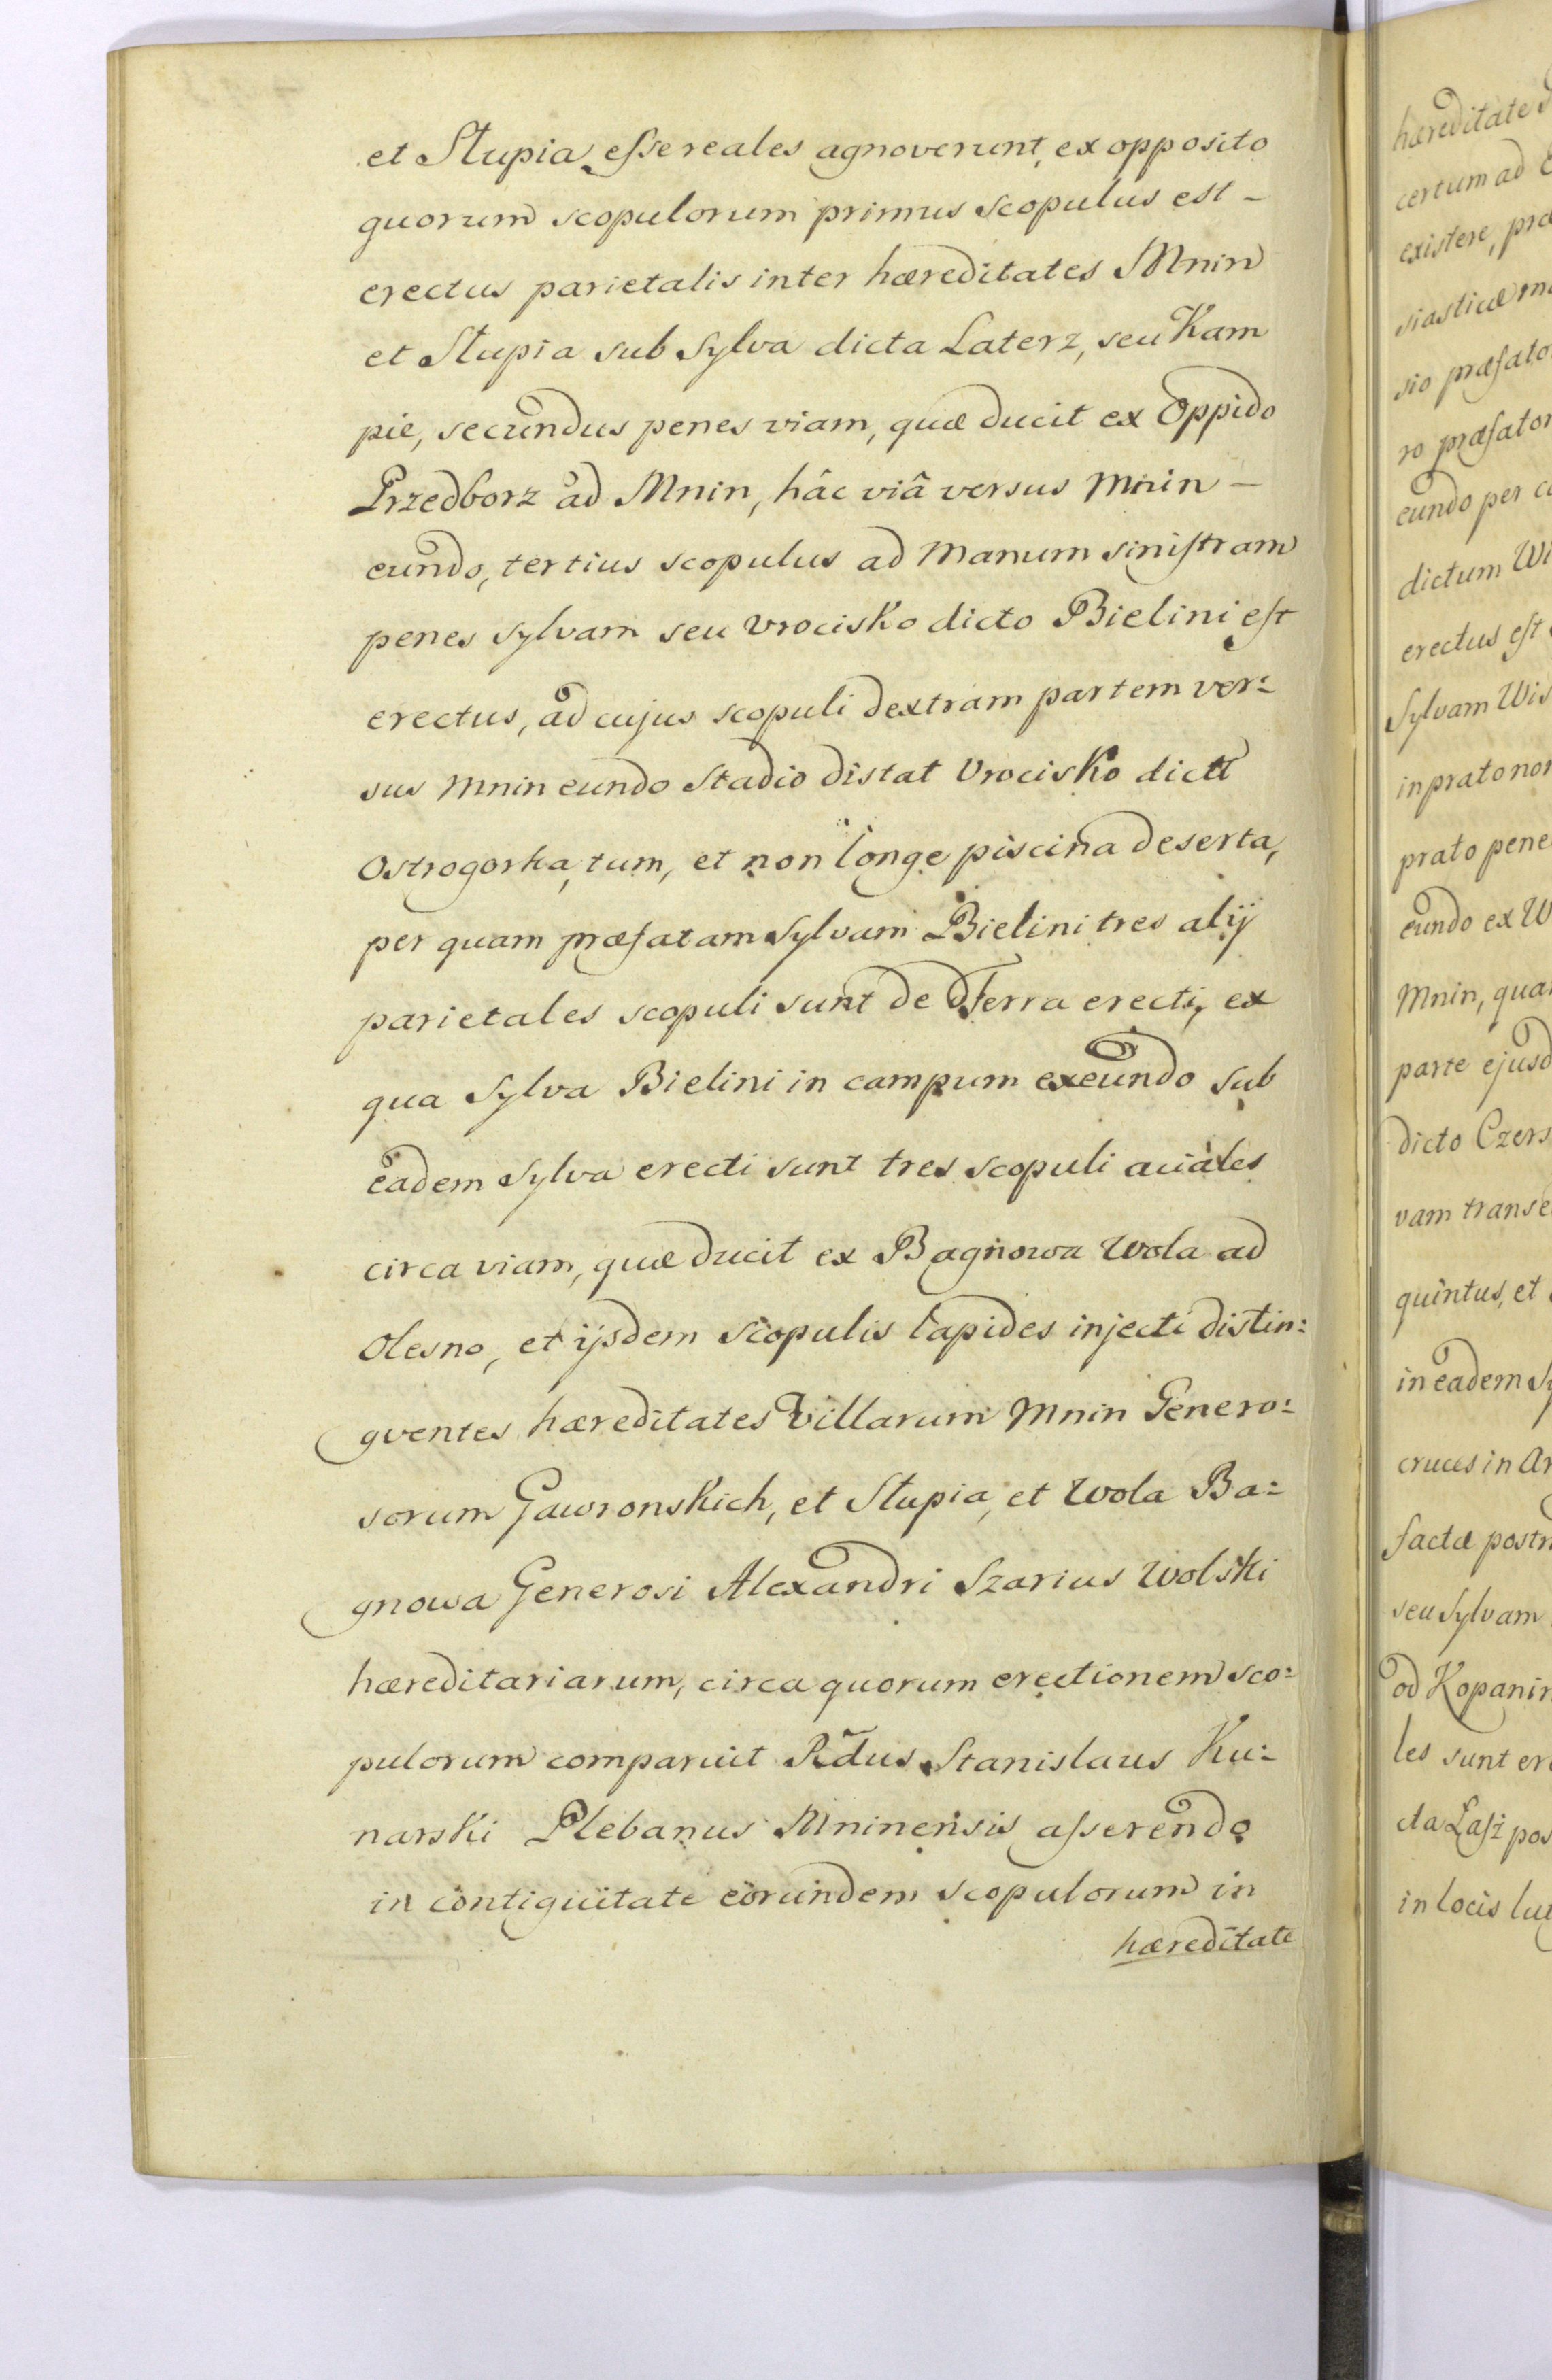 et Słupia, esse reales agnoverunt, ex opposito
quorum scopulorum primus scopulus est –
erectus parietalis inter hæreditates Mnin
et Słupia sub Sylva dicta Laterz, seu Kam
pie, secundus penes viam, quæ ducit ex Oppido
Przedborz ad Mnin, hâc viâ versus Mnin –
eundo, tertius scopulus ad Manum sinistram
penes sylvam seu Vrocisko dicto Bielini est
erectus, ad cujus scopuli dextram partem ver:
sus Mnin eundo Stadio distat Vrocisko dict
Ostrogorka, tum, et non longe piscina deserta,
per quam præfatam Sylvam Bielini tres alij
parietales scopuli sunt de Terra erecti, ex
qua Sylva Bielini in campum exeundo sub
eadem Sylva erecti sunt tres scopuli aciales
circa viam, quæ ducit ex Bagnowa Wola ad
Olesno, et ijsdem scopulis lapides injecti distin:
gventes hæreditates Villarum Mnin Genero:
sorum Gawronskich, et Słupia, et Wola Ba:
gnowa Generosi Alexandri Szarius Wolski
hæreditariarum, circa quorum erectionem sco:
pulorum comparuit Rdus Stanislaus Ku:
narski Plebanus Mninensis asserendo
in contiguitate eorundem scopulorum in
hæreditate
hæreditate
certum ad
existere, præ
siasticæ
sio præfato
ro præfator
eundo per
dictum Wi
erectus est
Sylvam Wis
in prato non
prato pene
eundo ex W
Mnin, qua
parte ejusd
dicto Czers
vam transe
quintus, et
in eadem Sy
cruces in Ar
factæ postr
seu Sylvam
od Kopanin
les sunt er
cta pos
in locis lu